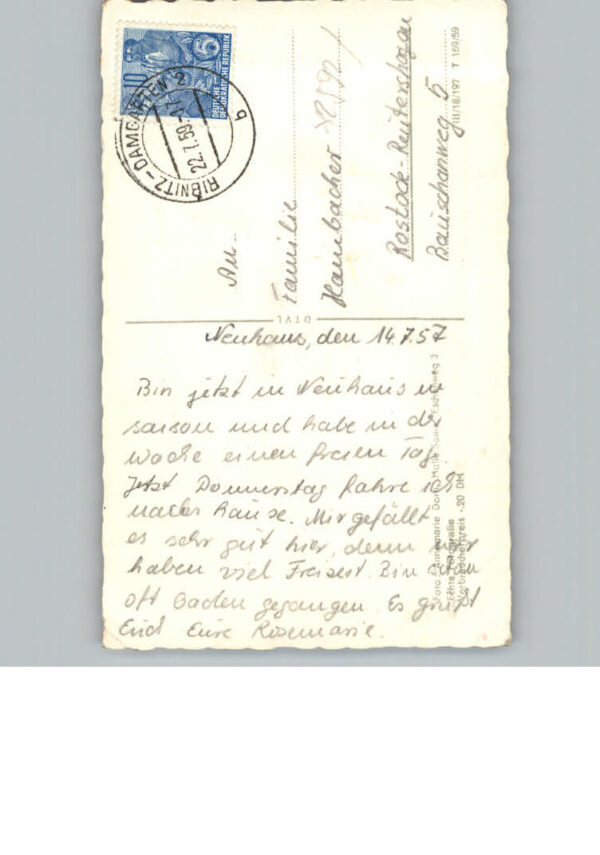 10
DEUTSCHE
DEMOKRATISCHE REPUBLIK
RIBNITZ-DAMGARTEN 2
22.7.59
b
An
Familie
Hambacher
Rostock-Reutershagen
Bauischanweg 5
III/18/197 T 169/59
DTVL
Neuhaus, den 14.7.57
Bin jetzt in Neuhaus in
saison und habe in der
woche einen freien Tag.
Jetzt Donnerstag fahre ich
nach hause. Mir gefällt
es sehr gut hier, denn wir
haben viel Freizeit. Bin schon
oft baden gegangen. Es grüßt
Euch Eure Rosemarie.
Echte Fotografie
Verbraucherpreis -.20 DM